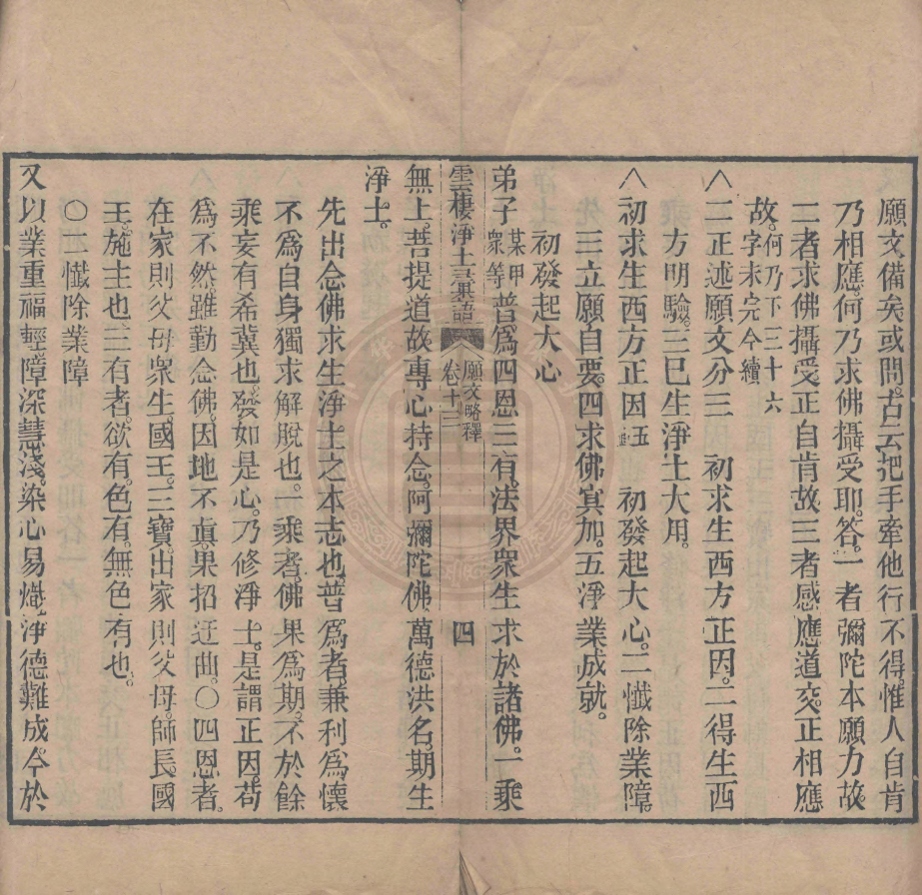 願文備矣或問古云把手牽他行不得惟人自肯
乃相應何乃求佛攝受耶答一者彌陀本願力故
二者求佛攝受正自肯故三者感應道交正相應
故。何乃下三十六
字未完今續
〈二正述願文分三　初求生西方正因。二得生西
方明驗。三已生淨土大用。
〈初求生西方正因五　初發起大心。二懺除業障。
三立願自要。四求佛冥加。五淨業成就。
初發起大心
弟子某甲
眾等普爲四恩三有。法界眾生求於諸佛。一乘
雲棲淨土彙語　願文略釋
卷十三　四
無上。菩提道故專心持念。阿彌陀佛萬德洪名。期生
淨土。
先出念佛求生淨土之本志也普爲者。兼利爲懷
不爲自身獨求解脫也。一乘者。佛果爲期。不於餘
乘妄有希冀也。發如是心。乃修淨土。是謂正因。苟
爲不然雖勤念佛。因地不眞。果招迂曲。〇四恩者。
在家則父母眾生。國王。三寶。出家則父母。師長。國
王。施主也三有者。欲有。色有。無色有也。
〇二懺除業障
又以業重福輕障深慧淺。染心易熾。淨德難成。今於